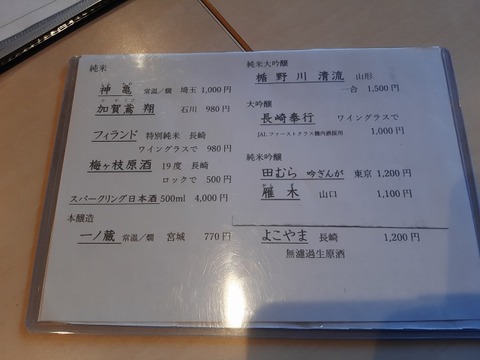 純米
神亀 常温／燗 埼玉 1,000円
加賀鳶 翔 石川 980円
フィランド 特別純米 長崎
ワイングラスで 980円
梅ヶ枝原酒 19度 長崎
ロックで 500円
スパークリング日本酒 500ml 4,000円
本醸造
一ノ蔵 常温／燗 宮城 770円
純米大吟醸
楯野川 清流 山形
一合 1,500円
大吟醸
長崎奉行 ワイングラスで
JALファーストクラス機内酒採用 1,000円
純米吟醸
田むら 吟ぎんが 東京 1,200円
雁木 山口 1,100円
よこやま 長崎 1,200円
無濾過生原酒